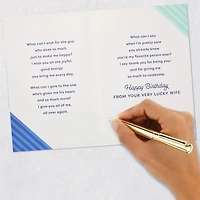 What can I wish for the guy
who does so much
just to make me happy?
I wish you all the joyful,
good energy
you bring me every day.
What can I give to the one
who's given me his heart
and so much more?
I give you all of me,
all over again.
What can I say
when I'm pretty sure
you already know
you're my favorite person ever?
I say thank you for being you
and for giving me
so much to celebrate.
Happy Birthday
FROM YOUR VERY LUCKY WIFE